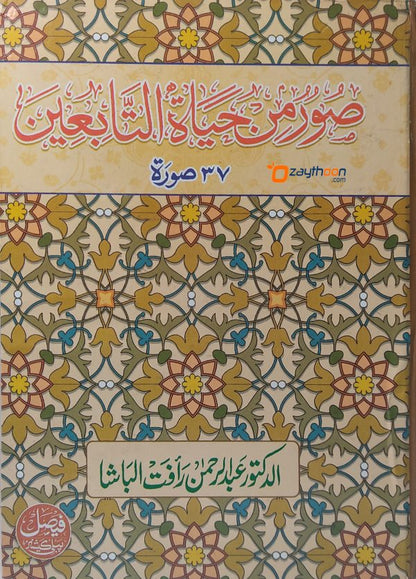 صُوَرٌ مِنْ حَيَاةِ التَّابِعِيْن
zaythoon
.com
٣٧ صورة
الدكتور عبد الرحمن رأفت الباشا
فيصل